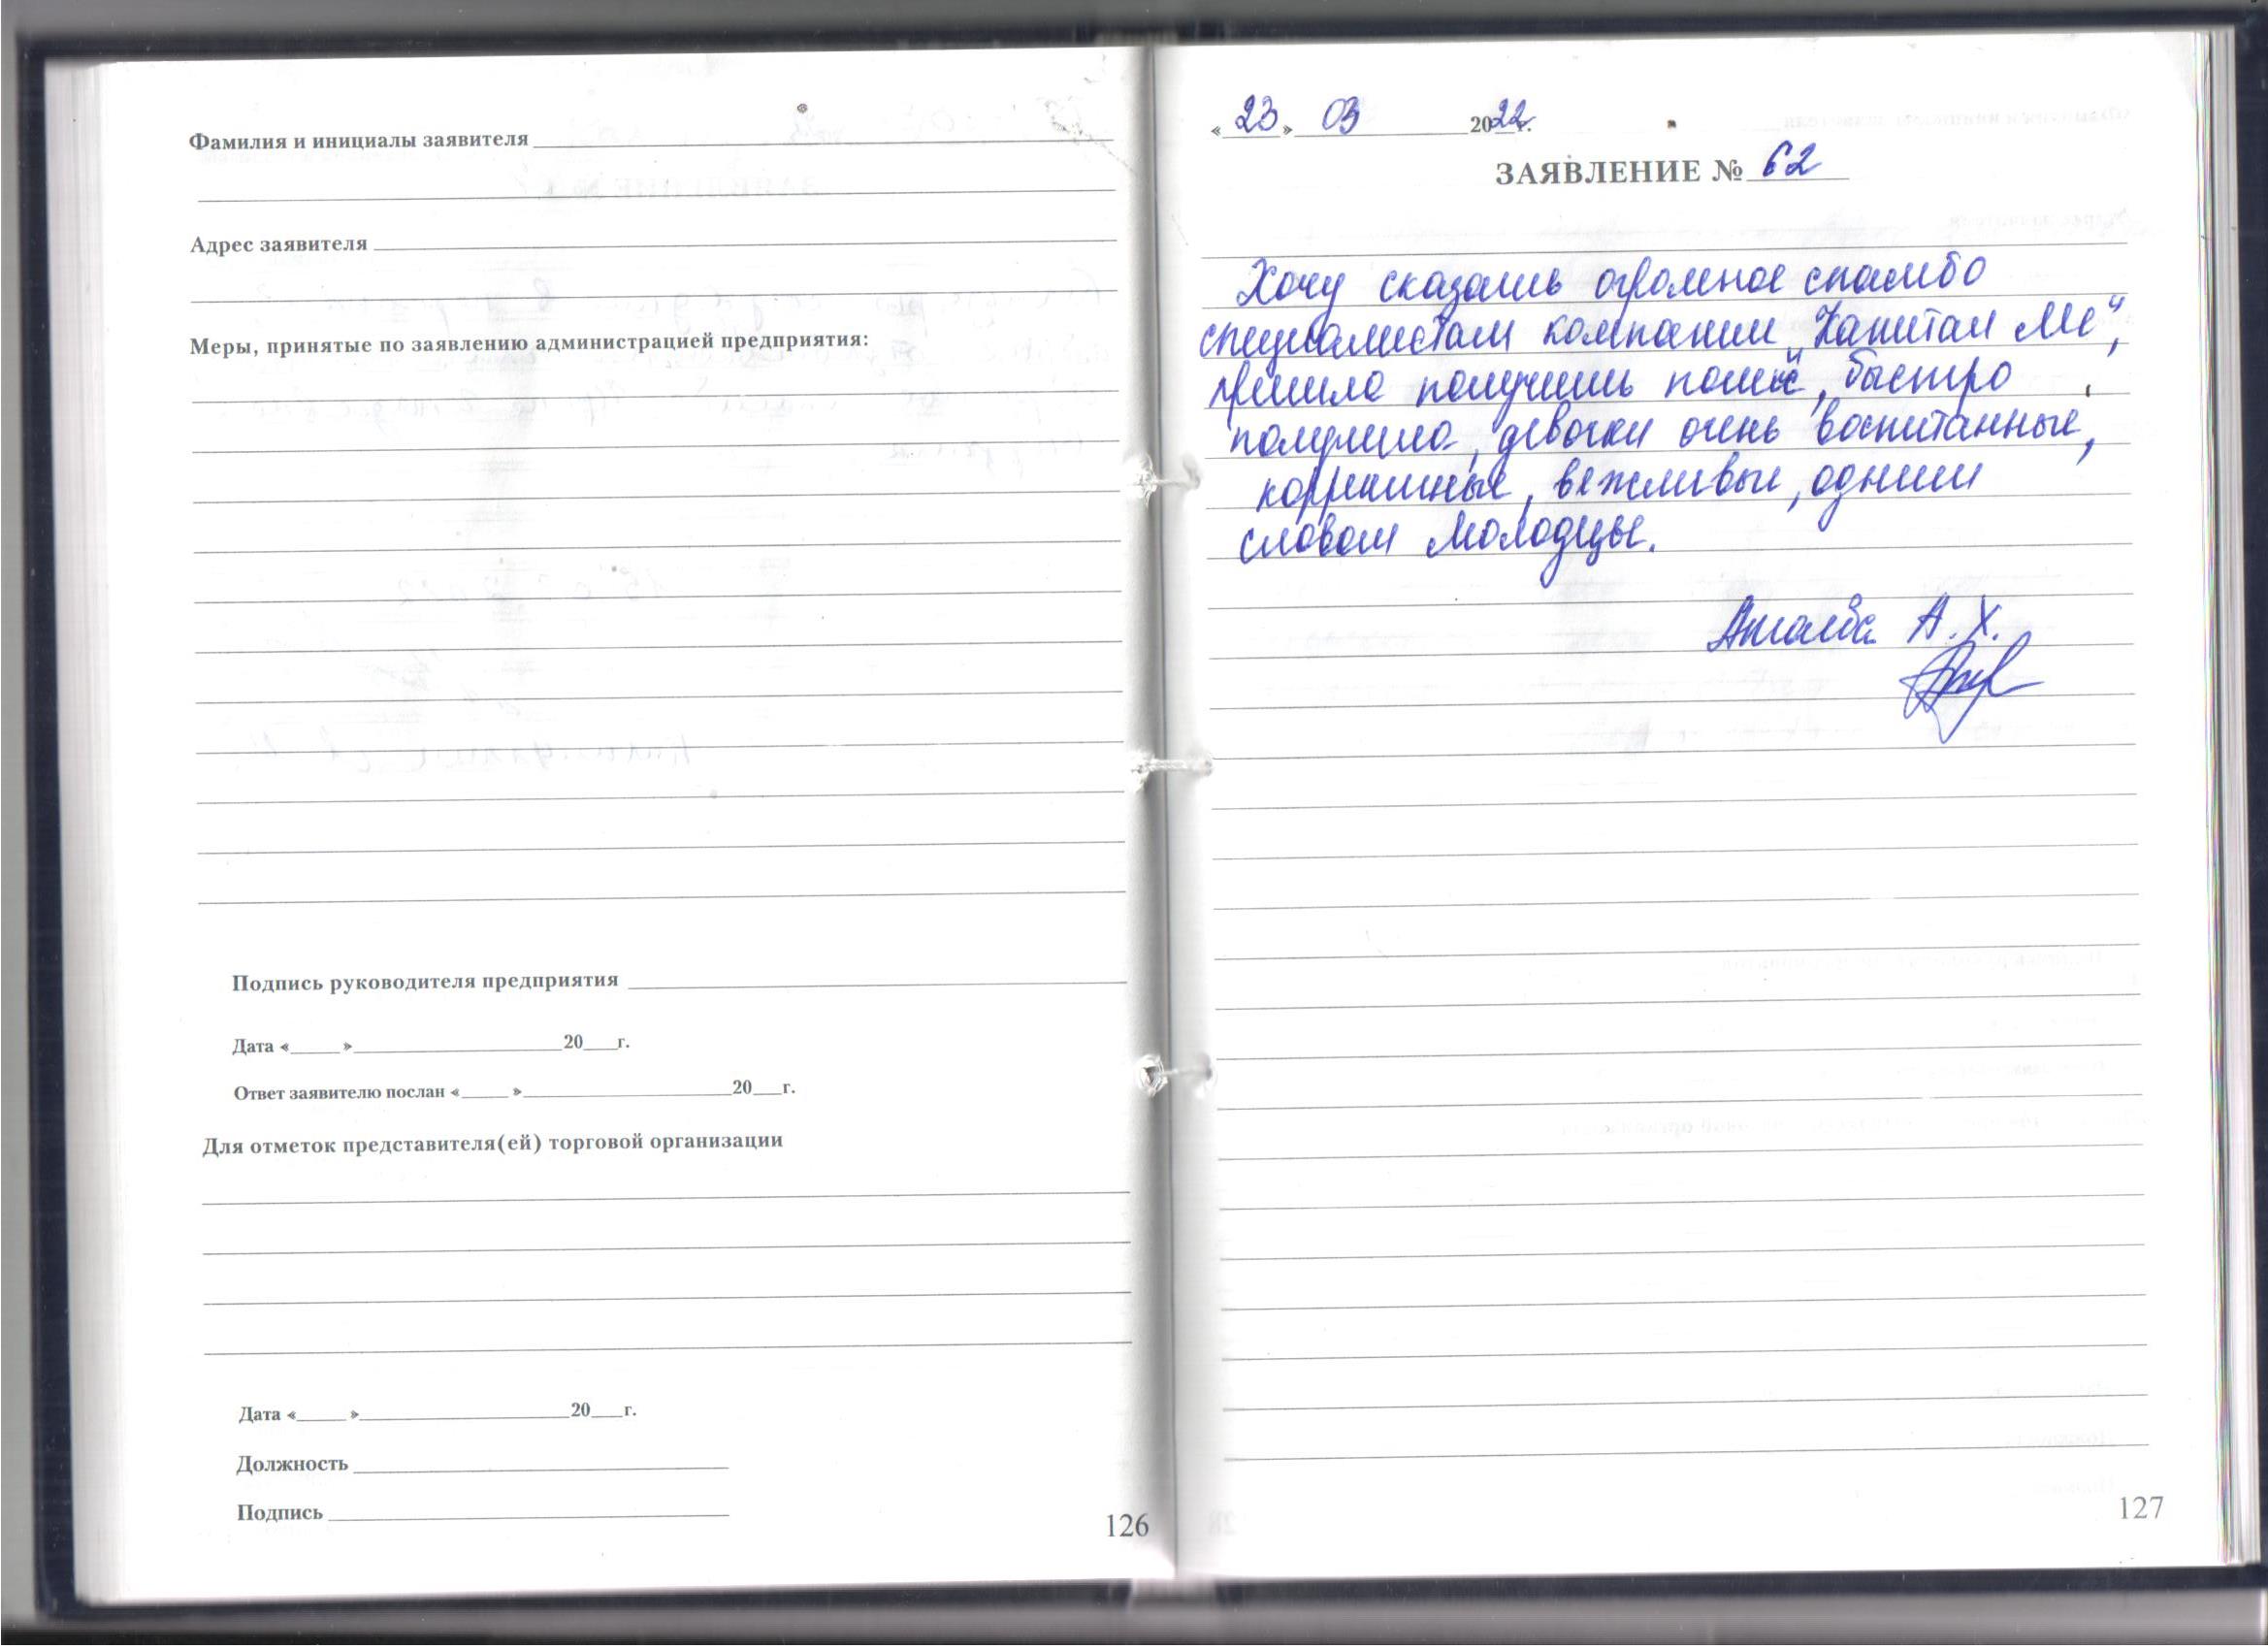 Фамилия и инициалы заявителя
Адрес заявителя
Меры, принятые по заявлению администрацией предприятия:
Подпись руководителя предприятия
Дата «____»________20__г.
Ответ заявителю послан «____»________20__г.
Для отметок представителя(ей) торговой организации
Дата «____»________20__г.
Должность
Подпись
126
«23» 03 2022г.
ЗАЯВЛЕНИЕ № 62
Хочу сказать огромное спасибо
специалистам компании „Капитал МС",
пришла получить полис, быстро
получила, девочки очень воспитанные,
корректные, вежливые, одним
словом молодцы.
А. Х.
127